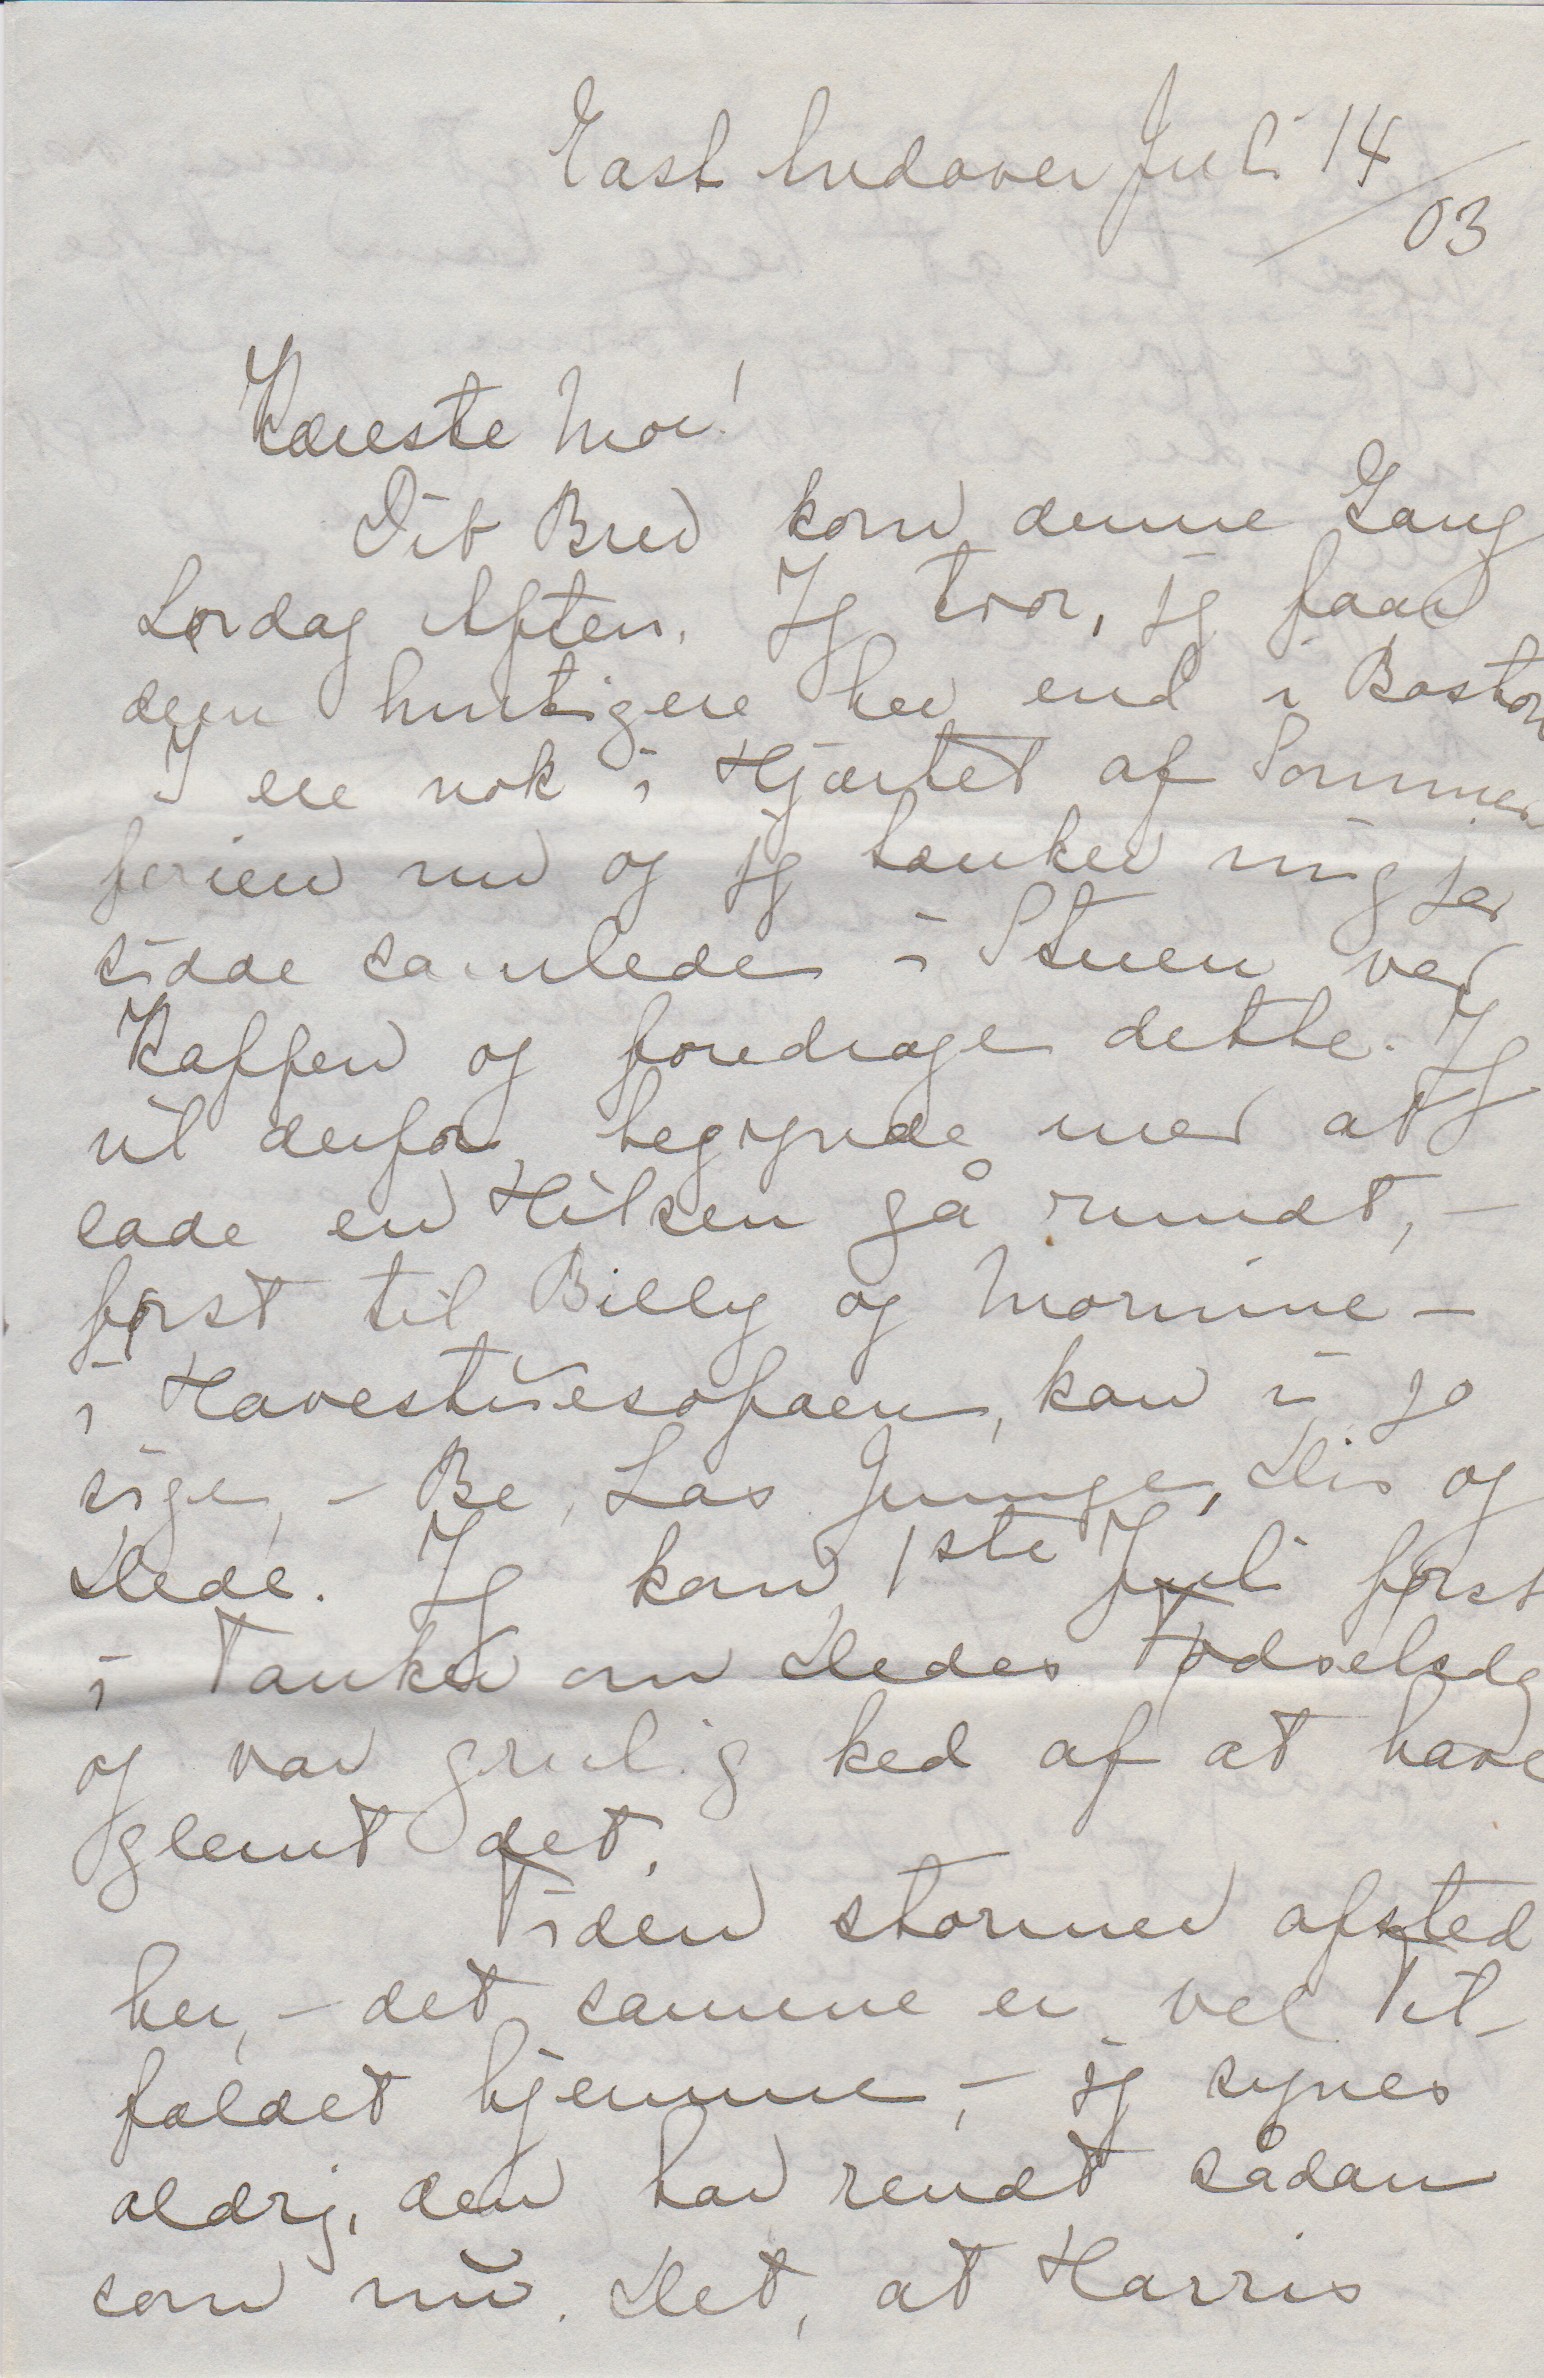 East Andover Juli 14/03
Kæreste Mor!
Dit Brev kom denne Gang
Lørdag Aften. Jeg tror, jeg faar
dem hurtigere her end i Boston
I ere nok i Hjærtet af Sommer
ferien nu og jeg tænker mig jer
sidde samlede i Stuen ved
Kaffen og foredrage dette. Jeg
vil derfor begynde med at
lade en Hilsen gå rundt, –
først til Billy og Mornine –
i Havestuesofaen, kan i jo
sige, – Be, Las Junge, Dis og
Dede. Jeg kom 1ste Juli først
i Tanker om Dedes Fødselsdg
og var grulig ked af at have
glemt det.
Tiden stormer afsted
her, – det samme er vel Til-
fældet hjemme, – jeg synes
aldrig, den har rendt sådan
som nu. Det, at Harris